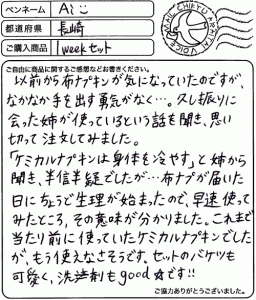 ペンネーム Ai
都道府県 長崎
ご購入商品 1weekセット
ご自由に商品に関するご感想などお書きください。
以前から布ナプキンが気になっていたのですが、
なかなか手を出す勇気がなく…。久し振りに
会った姉が使っているという話を聞き、思い
切って注文してみました。
「ケミカルナプキンは身体を冷やす」と姉から
聞き、半信半疑でしたが…布ナプが届いた
日にちょうど生理が始まったので、早速使って
みたところ、その意味が分かりました。これまで
当たり前に使っていたケミカルナプキンでした
が、もう使えなさそうです。セットのバケツも
可愛く、洗浄剤もgood☆です!!
ご協力ありがとうございました。